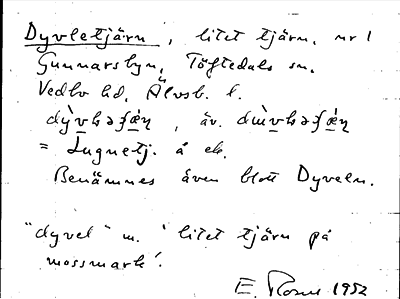 Dyvletjärn, litet tjärn, nr 1
Gunnarsbyn, Töftedals sn,
Vedbo hd, Älvsb. l.
, äv.
= Lugnetj. å ek.
Benämnes även blott Dyveln.
"dyvel" m. 'litet tjärn på
mossmark'.
E. 1952